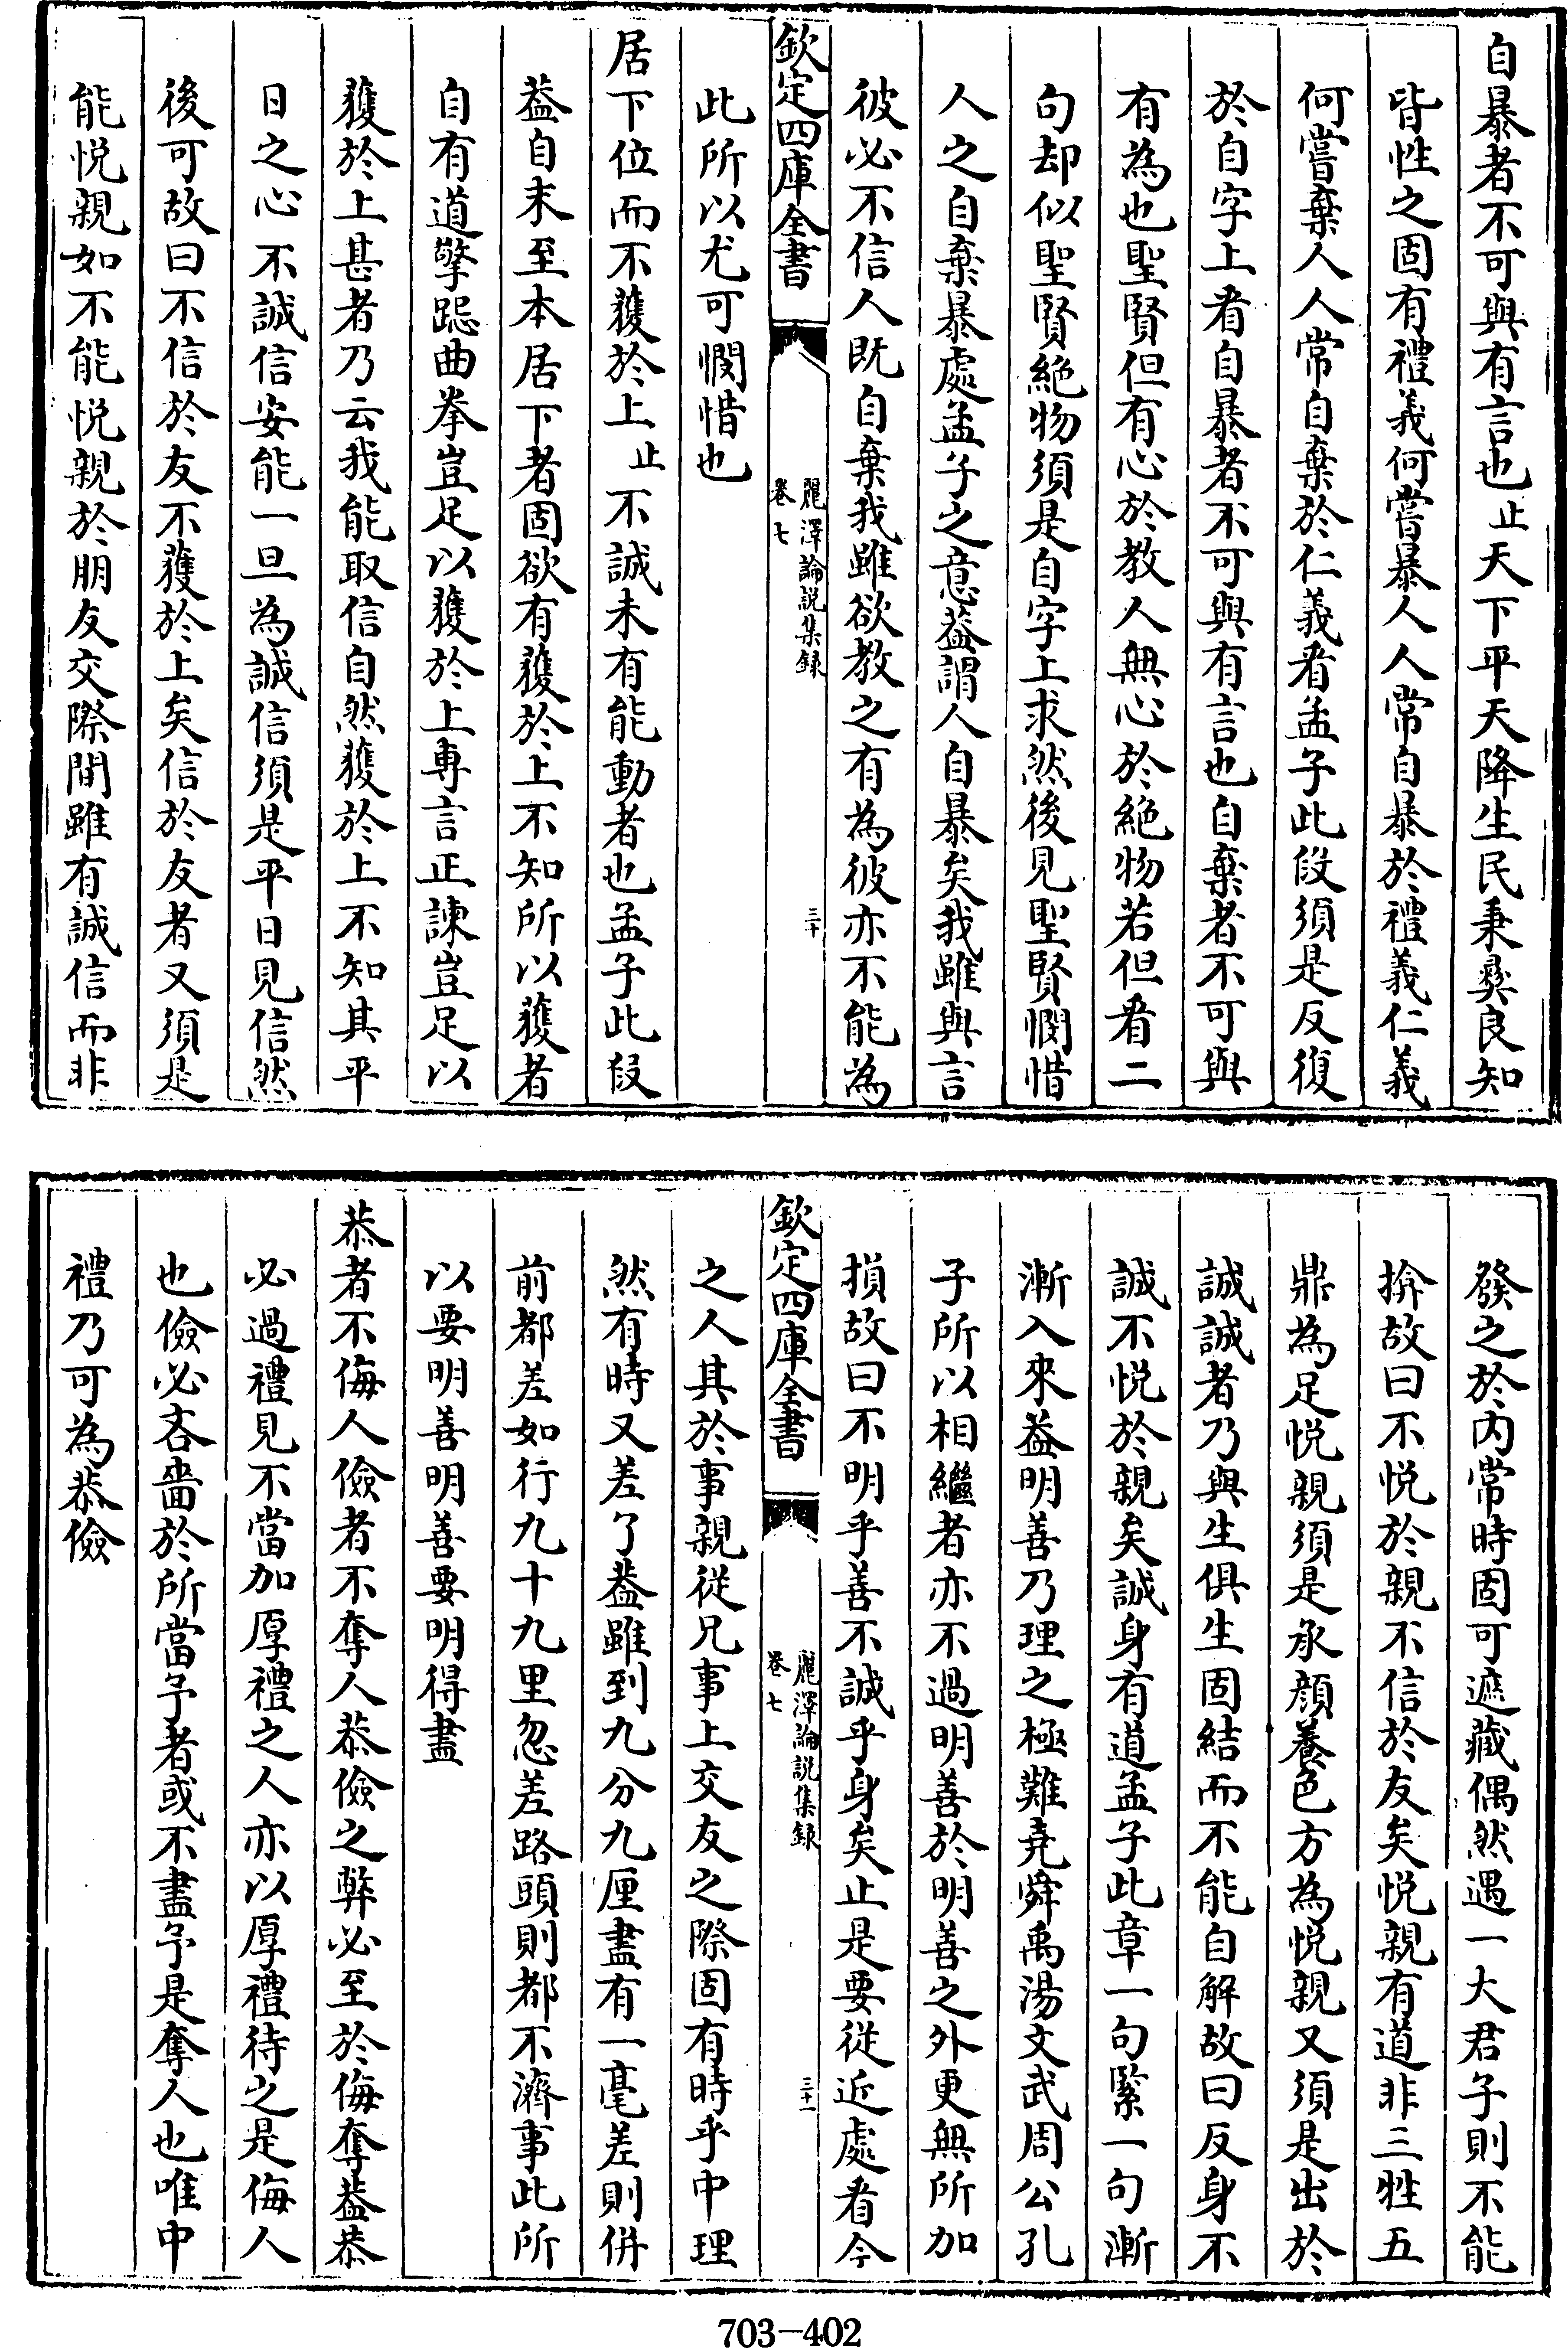 自暴者不可與有言也止天下平天降生民秉彜良知
皆性之固有禮義何嘗暴人人常自暴於禮義仁義
何嘗棄人人常自棄於仁義看孟子此段須是反復
於自字上看自暴者不可與有言也自棄者不可與
有為也聖賢但有心於教人無心於絶物若但看二
句却似聖賢絶物須是自字上求然後見聖賢憫惜
人之自棄暴處孟子之意葢謂人自暴矣我雖與言
彼必不信人既自棄我雖欲教之有為彼亦不能為
欽定四庫全書
麗澤論說集録
卷七
三十
此所以尤可憫惜也
居下位而不獲於上止不誠未有能動者也孟子此段
葢自末至本居下者固欲有獲於上不知所以獲者
自有道擎跽曲拳豈足以獲於上專言正諫豈足以
獲於上甚者乃云我能取信自然獲於上不知其平
日之心不誠信安能一旦為誠信須是平日見信然
後可故曰不信於友不獲於上矣信於友者又須是
能悦親如不能悦親於朋友交際間雖有誠信而非
發之於内常時固可遮藏偶然遇一大君子則不能
揜故曰不悦於親不信於友矣悦親有道非三牲五
鼎為足悦親須是承顔養色方為悦親又須是出於
誠誠者乃與生俱生固結而不能自解故曰反身不
誠不悦於親矣誠身有道孟子此章一句緊一句漸
漸入來葢明善乃理之極難堯舜禹湯文武周公孔
子所以相繼者亦不過明善於明善之外更無所加
損故曰不明乎善不誠乎身矣止是要從近處看今
欽定四庫全書
麗澤論說集録
卷七
三十一
之人其於事親從兄事上交友之際固有時乎中理
然有時又差了葢雖到九分九厘盡有一毫差則併
前都差如行九十九里忽差路頭則都不濟事此所
以要明善明善要明得盡
恭者不侮人儉者不奪人恭儉之弊必至於侮奪葢恭
必過禮見不當加厚禮之人亦以厚禮待之是侮人
也儉必吝嗇於所當予者或不盡予是奪人也唯中
禮乃可為恭儉
703-402